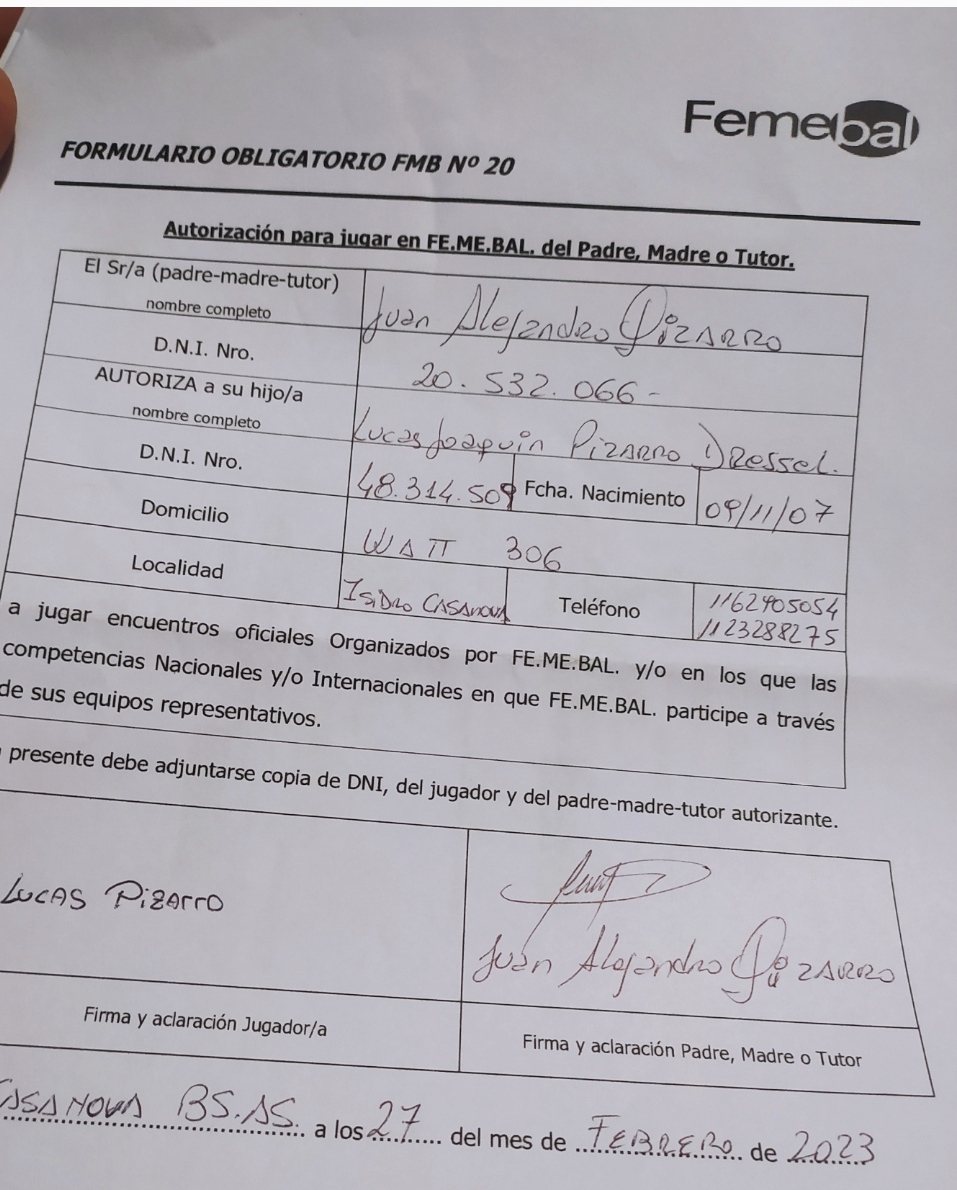 Femebal
FORMULARIO OBLIGATORIO FMB Nº 20
Autorización para jugar en FE.ME.BAL. del Padre, Madre o Tutor.
El Sr/a (padre-madre-tutor)
nombre completo
Juan Alejandro PizARRO
D.N.I. Nro.
20.532.066-
AUTORIZA a su hijo/a
nombre completo
Lucas Joaquin PizARRO DRessel.
D.N.I. Nro.
48.314.509 Fcha. Nacimiento 09/11/07
Domicilio
WATT 306
Localidad
ISiDRO CASANOVA Teléfono 1162405054
1123288275
a jugar encuentros oficiales Organizados por FE.ME.BAL. y/o en los que las
competencias Nacionales y/o Internacionales en que FE.ME.BAL. participe a través
de sus equipos representativos.
presente debe adjuntarse copia de DNI, del jugador y del padre-madre-tutor autorizante.
LUCAS PizArro
Juan Alejandro PizARRO
Firma y aclaración Jugador/a
Firma y aclaración Padre, Madre o Tutor
CASANOVA BS.AS. a los 27 del mes de FEBRERO de 2023